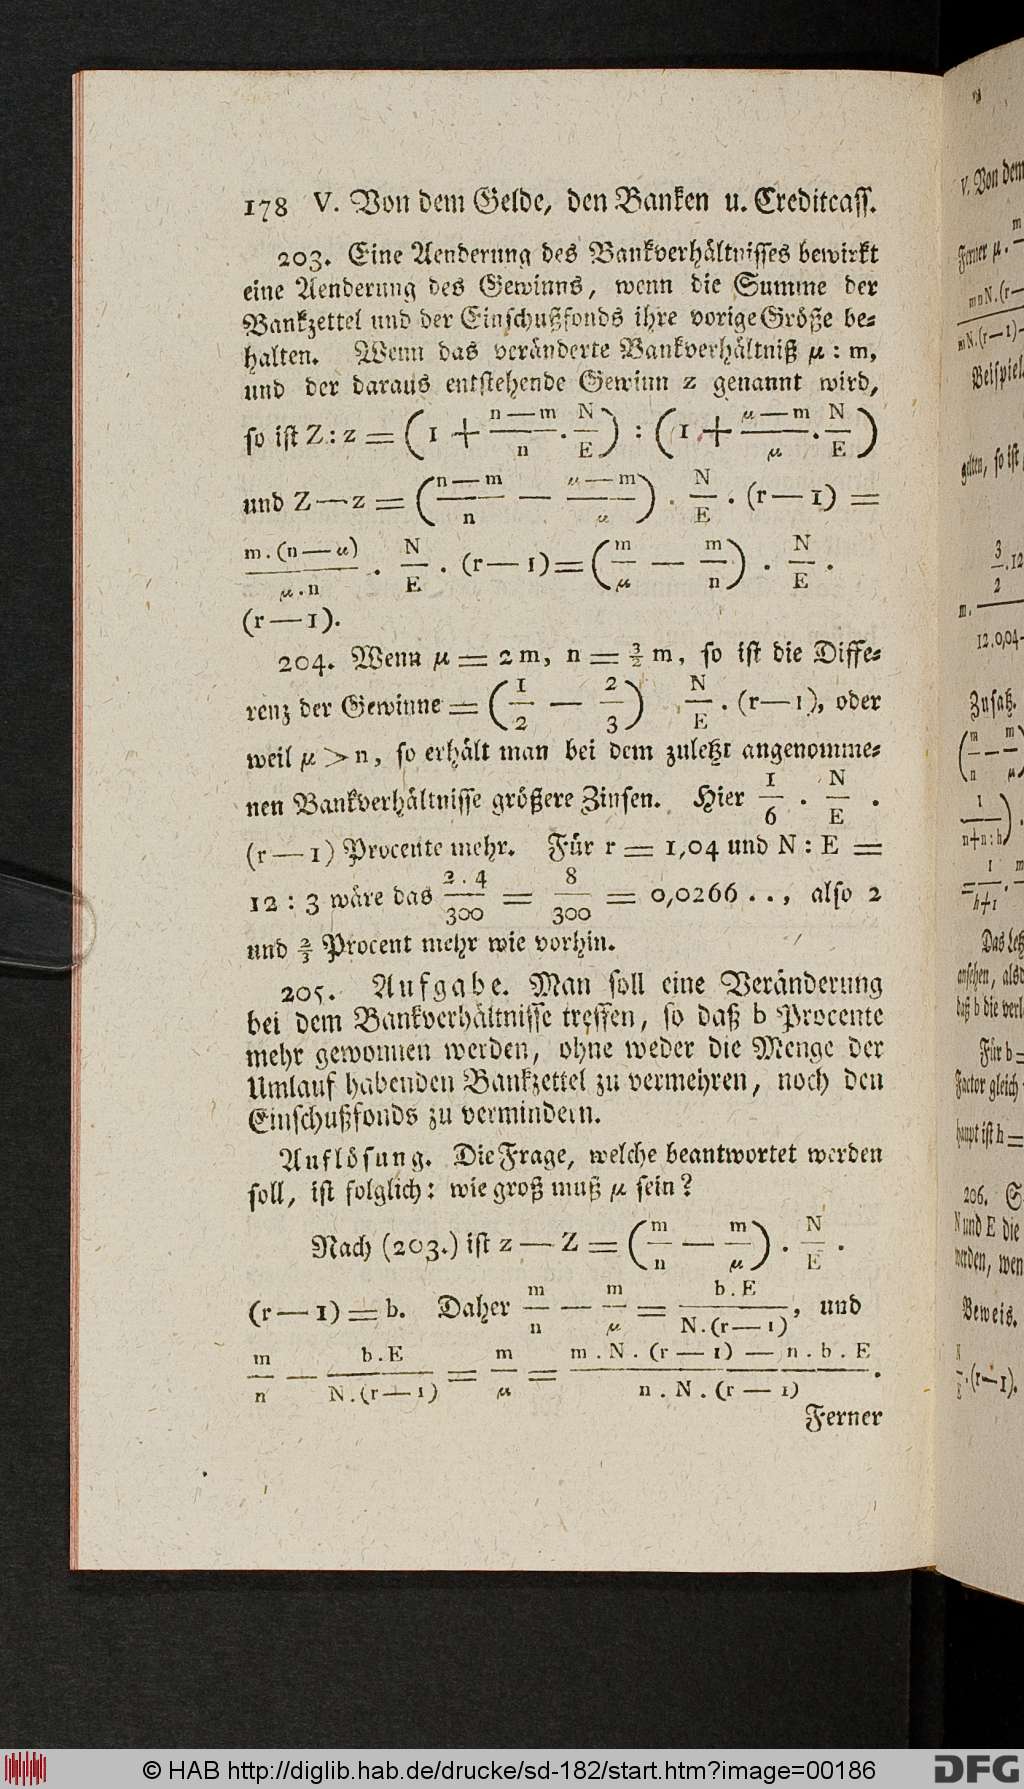 178 V. Von dem Gelde, den Banken u. Creditcass.
203. Eine Aenderung des Bankverhältnisses bewirkt
eine Aenderung des Gewinns, wenn die Summe der
Bankzettel und der Einschußfonds ihre vorige Größe be=
halten. Wenn das veränderte Bankverhältniß μ : m,
und der daraus entstehende Gewinn z genannt wird,
so ist Z : z = (1 + n—m/n . N/E) : (1 + μ—m/μ . N/E)
und Z — z = (n—m/n — μ—m/μ) . N/E . (r — 1) =
m.(n—μ)/μ.n . N/E . (r — 1) = (m/μ — m/n) . N/E .
(r — 1).
204. Wenn μ = 2 m, n = 3/2 m, so ist die Diffe=
renz der Gewinne = (1/2 — 2/3) . N/E . (r — 1), oder
weil μ > n, so erhält man bei dem zuletzt angenomme=
nen Bankverhältnisse größere Zinsen. Hier 1/6 . N/E .
(r — 1) Procente mehr. Für r = 1,04 und N : E =
12 : 3 wäre das 2 . 4/300 = 8/300 = 0,0266 . . , also 2
und 2/3 Procent mehr wie vorhin.
205. Aufgabe. Man soll eine Veränderung
bei dem Bankverhältnisse treffen, so daß b Procente
mehr gewonnen werden, ohne weder die Menge der
Umlauf habenden Bankzettel zu vermehren, noch den
Einschußfonds zu vermindern.
Auflösung. Die Frage, welche beantwortet werden
soll, ist folglich: wie groß muß μ sein?
Nach (203.) ist z — Z = (m/n — m/μ) . N/E .
(r — 1) = b. Daher m/n — m/μ = b . E/N . (r — 1), und
m/n — b . E/N . (r — 1) = m/μ = m . N . (r — 1) — n . b . E/n . N . (r — 1).
Ferner
V. Von dem
Ferner μ.
Beispiel
gelten, so ist
12.0,04
Zusatz.
Das letz
ansehen, alsd
daß b die verl
Für b =
Factor gleich
haupt ist h =
206. S
N und E die
werden, wen
Beweis.
.(r—1).
© HAB http://diglib.hab.de/drucke/sd-182/start.htm?image=00186
DFG